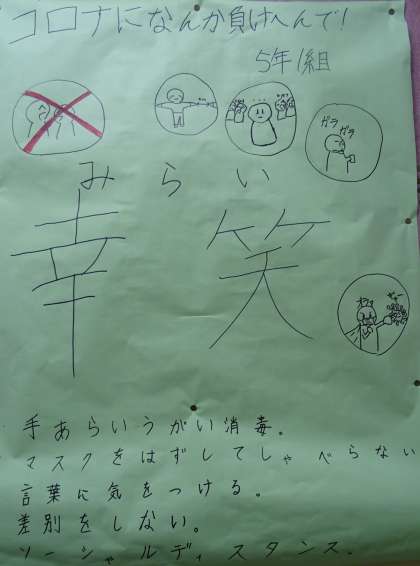 コロナになんか負けへんで!
5年1組
ガラ
ガラ
みらい
幸笑
手あらいうがい消毒。
マスクをはずしてしゃべらない
言葉に気をつける。
差別をしない。
ソーシャルディスタンス.